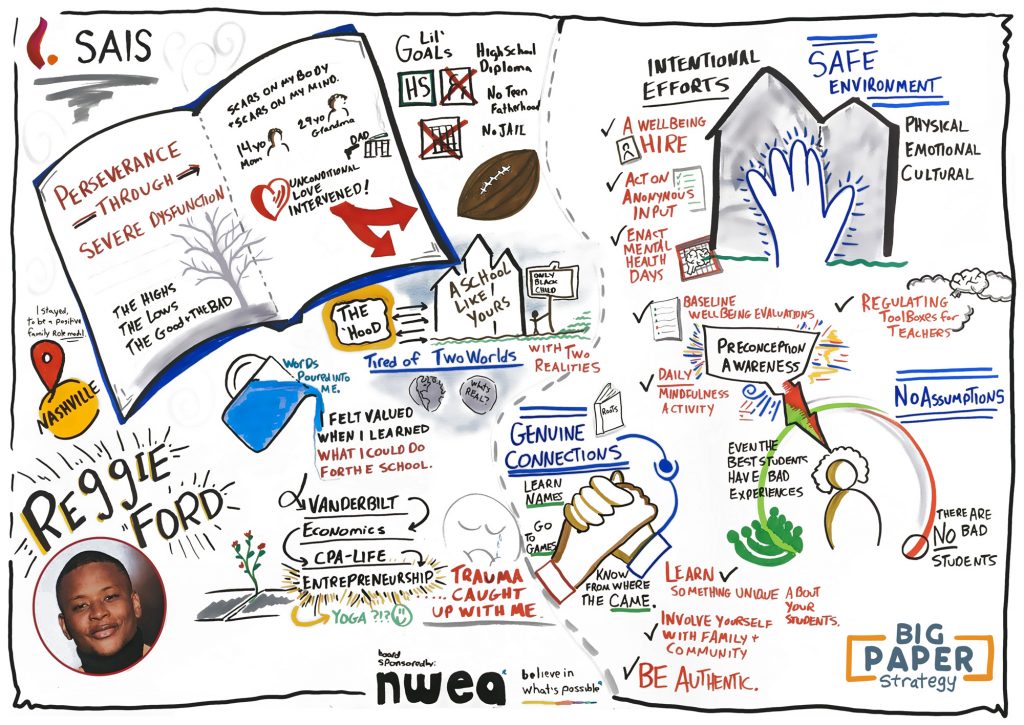 SAIS
PERSEVERANCE
THROUGH
SEVERE DYSFUNCTION
THE HIGHS
THE LOWS
THE GOOD + THE BAD
SCARS ON MY BODY
+ SCARS ON MY MIND.
29 yo
Grandma
14 yo
Mom
DAD
UNCONDITIONAL
LOVE
INTERVENED!
Lil'
GOALS
HS
High School
Diploma
No Teen
Fatherhood
No JAIL
THE
'HOOD
A SCHOOL
LIKE!
YOURS
ONLY
BLACK
CHILD
Tired of Two Worlds
WITH TWO
REALITIES
What's
REAL?
I stayed,
to be a positive
family Role model.
NASHVILLE
WORDS
POURED INTO
ME.
I FELT VALUED
WHEN I LEARNED
WHAT I COULD DO
FOR THE SCHOOL.
REGGIE
FORD
VANDERBILT
Economics
CPA-LIFE
ENTREPRENEURSHIP
YOGA ?!?
TRAUMA
... CAUGHT
UP WITH ME.
board
sponsored by:
nwea
believe in
what's possible
INTENTIONAL
EFFORTS
A WELLBEING
HIRE
ACT ON
ANONYMOUS
INPUT
ENACT
MENTAL
HEALTH
DAYS
SAFE
ENVIRONMENT
PHYSICAL
EMOTIONAL
CULTURAL
BASELINE
WELLBEING EVALUATIONS
REGULATING
TOOLBOXES FOR
TEACHERS
DAILY
MINDFULNESS
ACTIVITY
PRECONCEPTION
AWARENESS
NO ASSUMPTIONS
EVEN THE
BEST STUDENTS
HAVE BAD
EXPERIENCES
THERE ARE
NO BAD
STUDENTS
ROOTS
GENUINE
CONNECTIONS
LEARN
NAMES
GO
TO
GAMES
KNOW
FROM WHERE
THE CAME.
LEARN
SOMETHING UNIQUE ABOUT
YOUR
STUDENTS.
INVOLVE YOURSELF
WITH FAMILY +
COMMUNITY
BE AUTHENTIC.
BIG
PAPER
Strategy